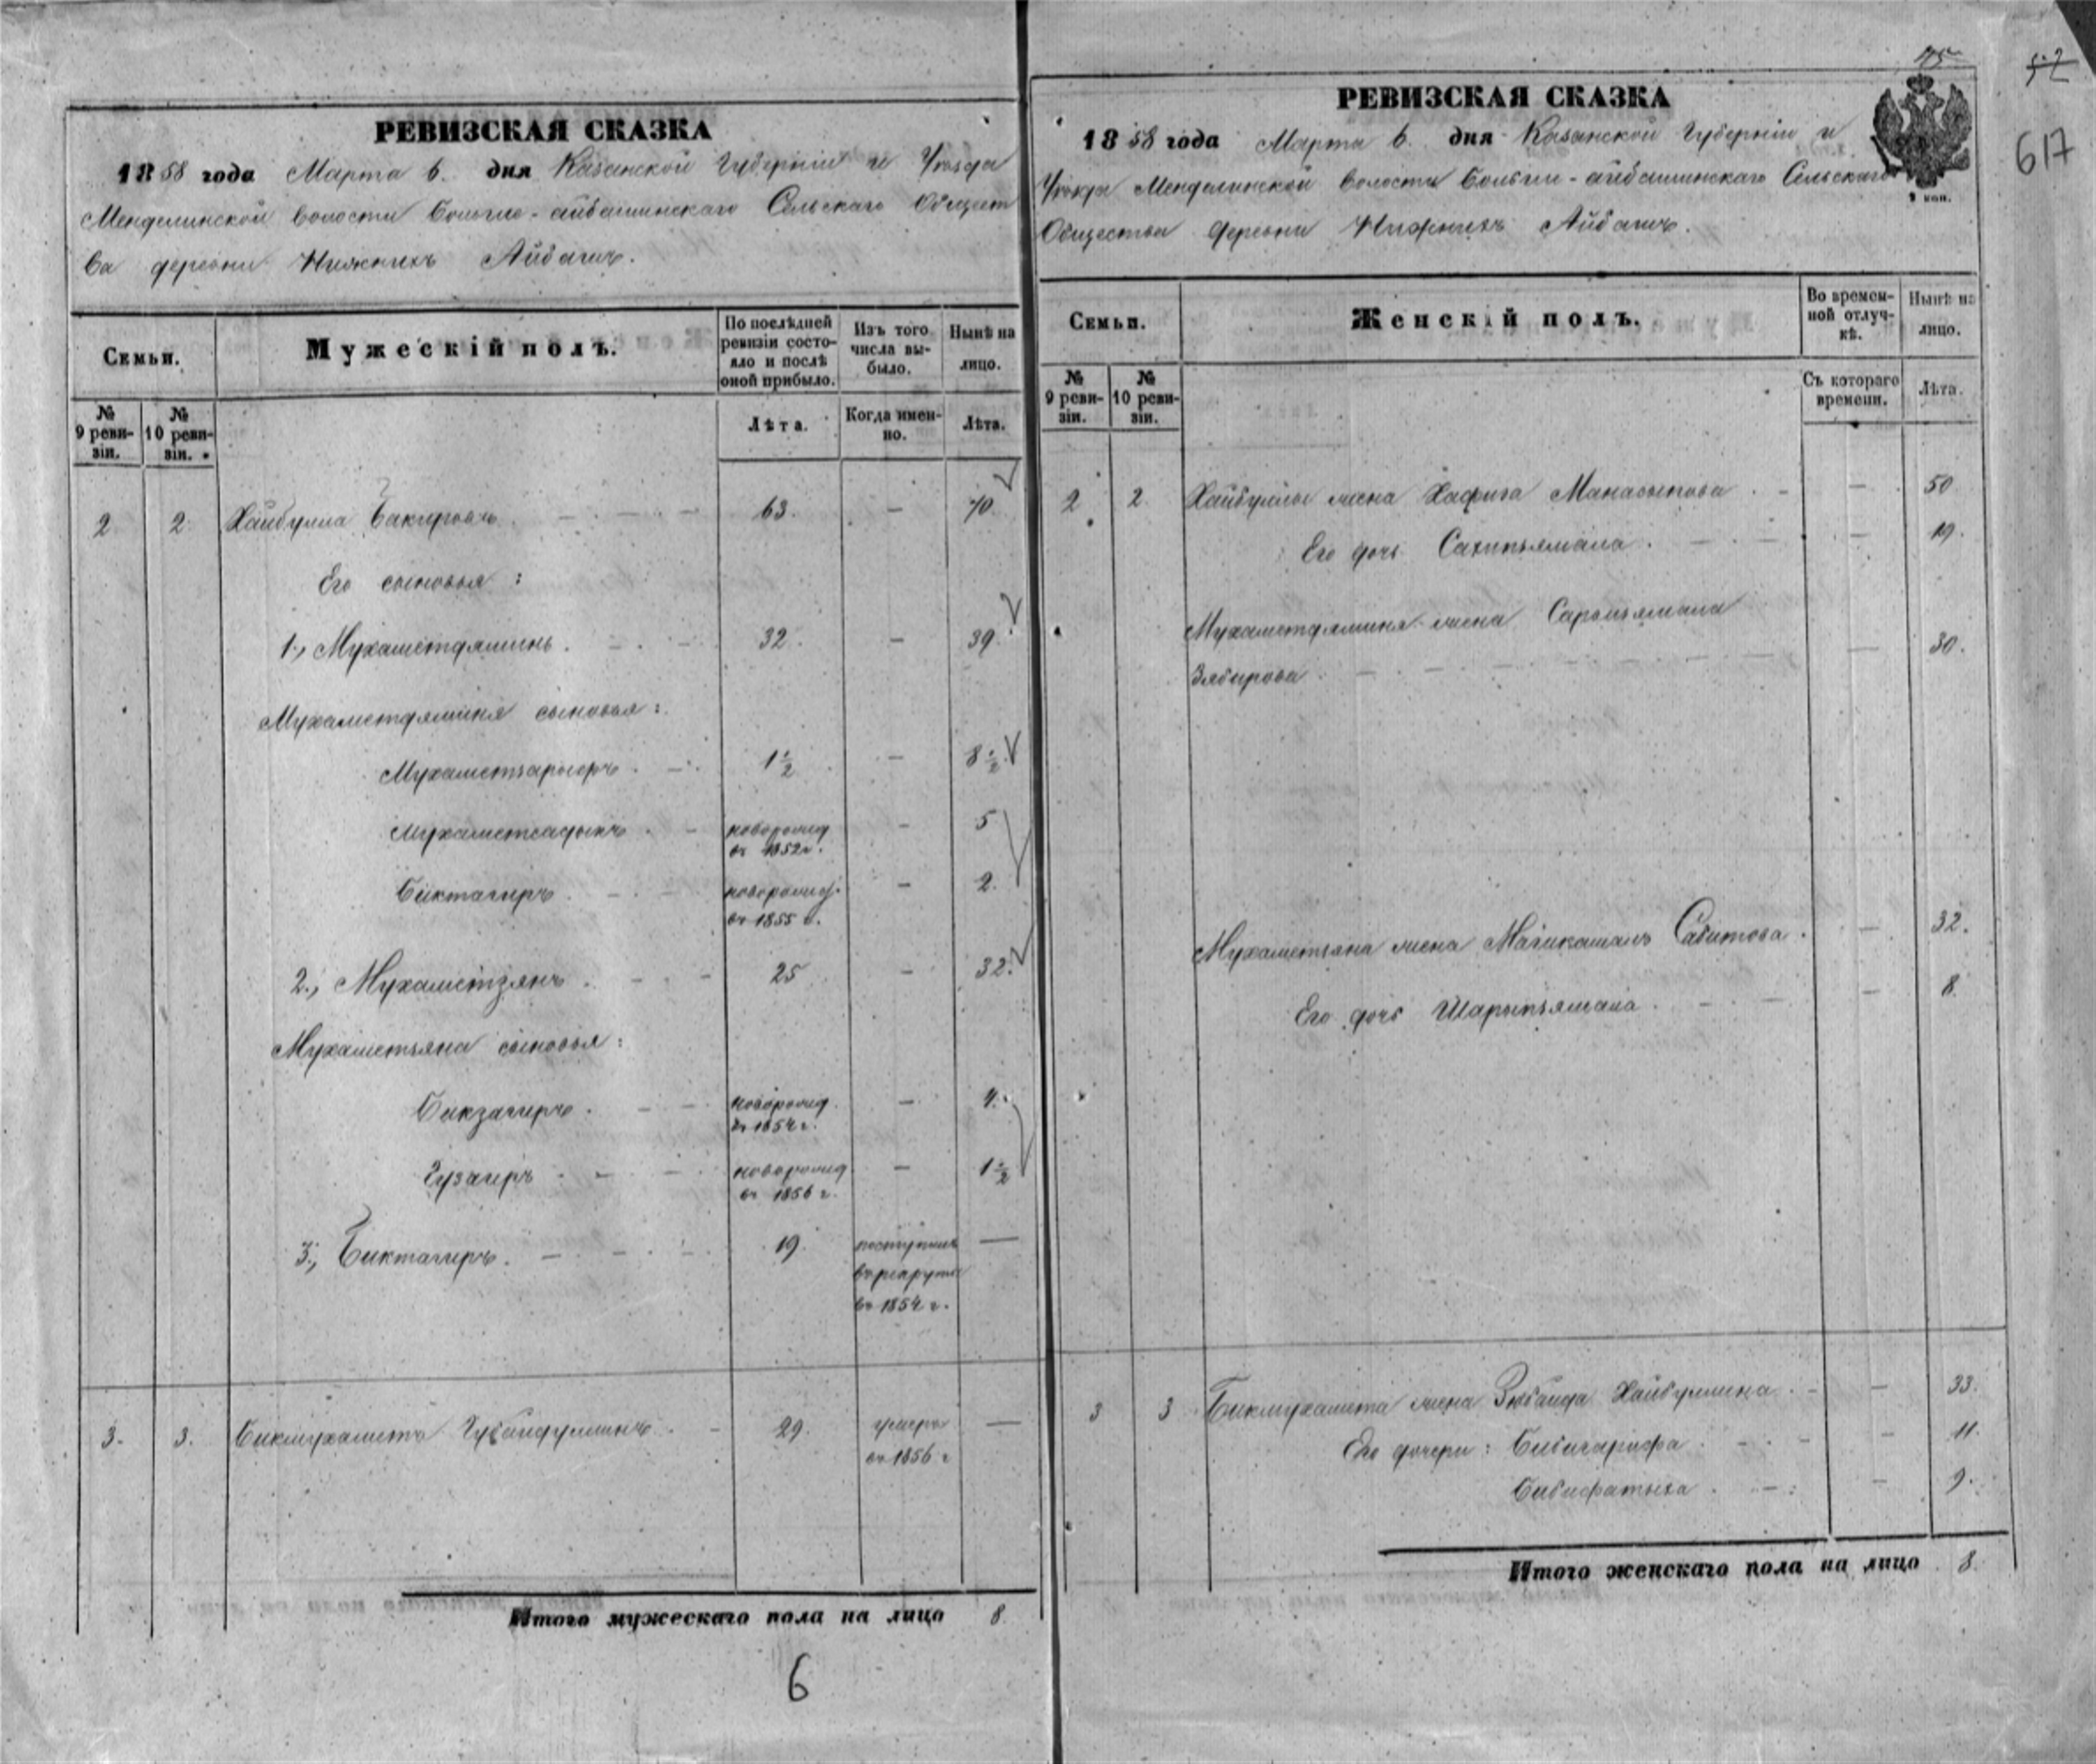 РЕВИЗСКАЯ СКАЗКА
1858 года Марта 6. дня Казанской Губерніи и Уѣзда
Менделинской волости Больше-айбашинскаго Сельскаго Общест
ва деревни Нижнихъ Айбашъ.
Семьи.
Мужескій полъ.
По послѣдней ревизіи состо-
яло и послѣ оной прибыло.
Изъ того числа вы-
было.
Нынѣ на лицо.
№ 9 реви-
зіи.
№ 10 реви-
зіи.
Лѣта.
Когда имен-
но.
Лѣта.
2 2 Хайбулла Бакировъ. 63. — 70.
Его сыновья:
1., Мухаметдяминъ. 32. — 39.
Мухаметдяминя сыновья:
Мухаметзарыфъ. 1½ — 8½.
Мухаметсадыкъ. новорожд. въ 1852 г. — 5
Биктагиръ. новорожд. въ 1855 г. — 2.
2., Мухаметзянъ. 25 — 32.
Мухаметьяна сыновья:
Бикзагиръ. новорожд. въ 1854 г. — 4.
Гузаиръ новорожд. въ 1856 г. — 1½
3., Биктагиръ. 19. поступилъ въ рекруты въ 1854 г. —
3. 3. Бикмухаметъ Губайдуллинъ. 29. умеръ въ 1856 г —
Итого мужескаго пола на лицо 8.
6
75
52
617
РЕВИЗСКАЯ СКАЗКА
1858 года Марта 6. дня Казанской Губерніи и
Уѣзда Менделинской волости Больше-айбашинскаго Сельскаго
Общества деревни Нижнихъ Айбашъ.
Семьи.
Женскій полъ.
Во времен-
ной отлуч-
кѣ.
Нынѣ на лицо.
№ 9 реви-
зіи.
№ 10 реви-
зіи.
Съ котораго времени.
Лѣта.
2 2. Хайбуллы жена Хафиза Манасыпова. — 50.
Его дочь Сахипьямала. — 19.
Мухаметдяминя жена Сарвиьямала
Зябирова. — 30.
Мухаметьяна жена Сабитова. — 32.
Его дочь Шарыпьямала. — 8.
3 3 Бикмухамета жена Зюбаида Хайбуллина. — 33.
Его дочери: Бибигарифа. — 11.
Бибифатыха. — 9.
Итого женскаго пола на лицо 8.